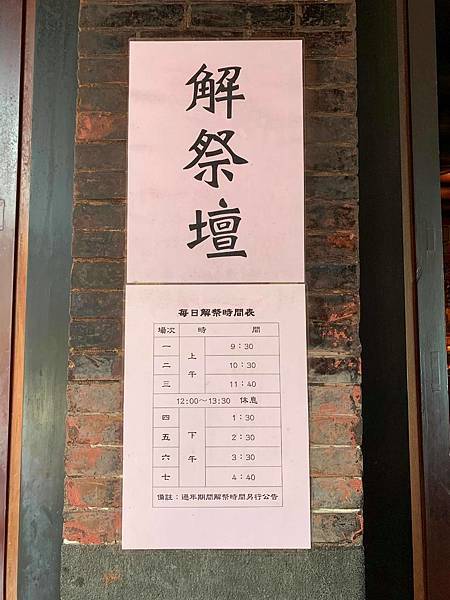 解祭壇
每日解祭時間表
場次 時 間
一 上午 9：30
二 10：30
三 11：40
12:00～13:30 休息
四 下午 1：30
五 2：30
六 3：30
七 4：40
備註：過年期間解祭時間另行公告